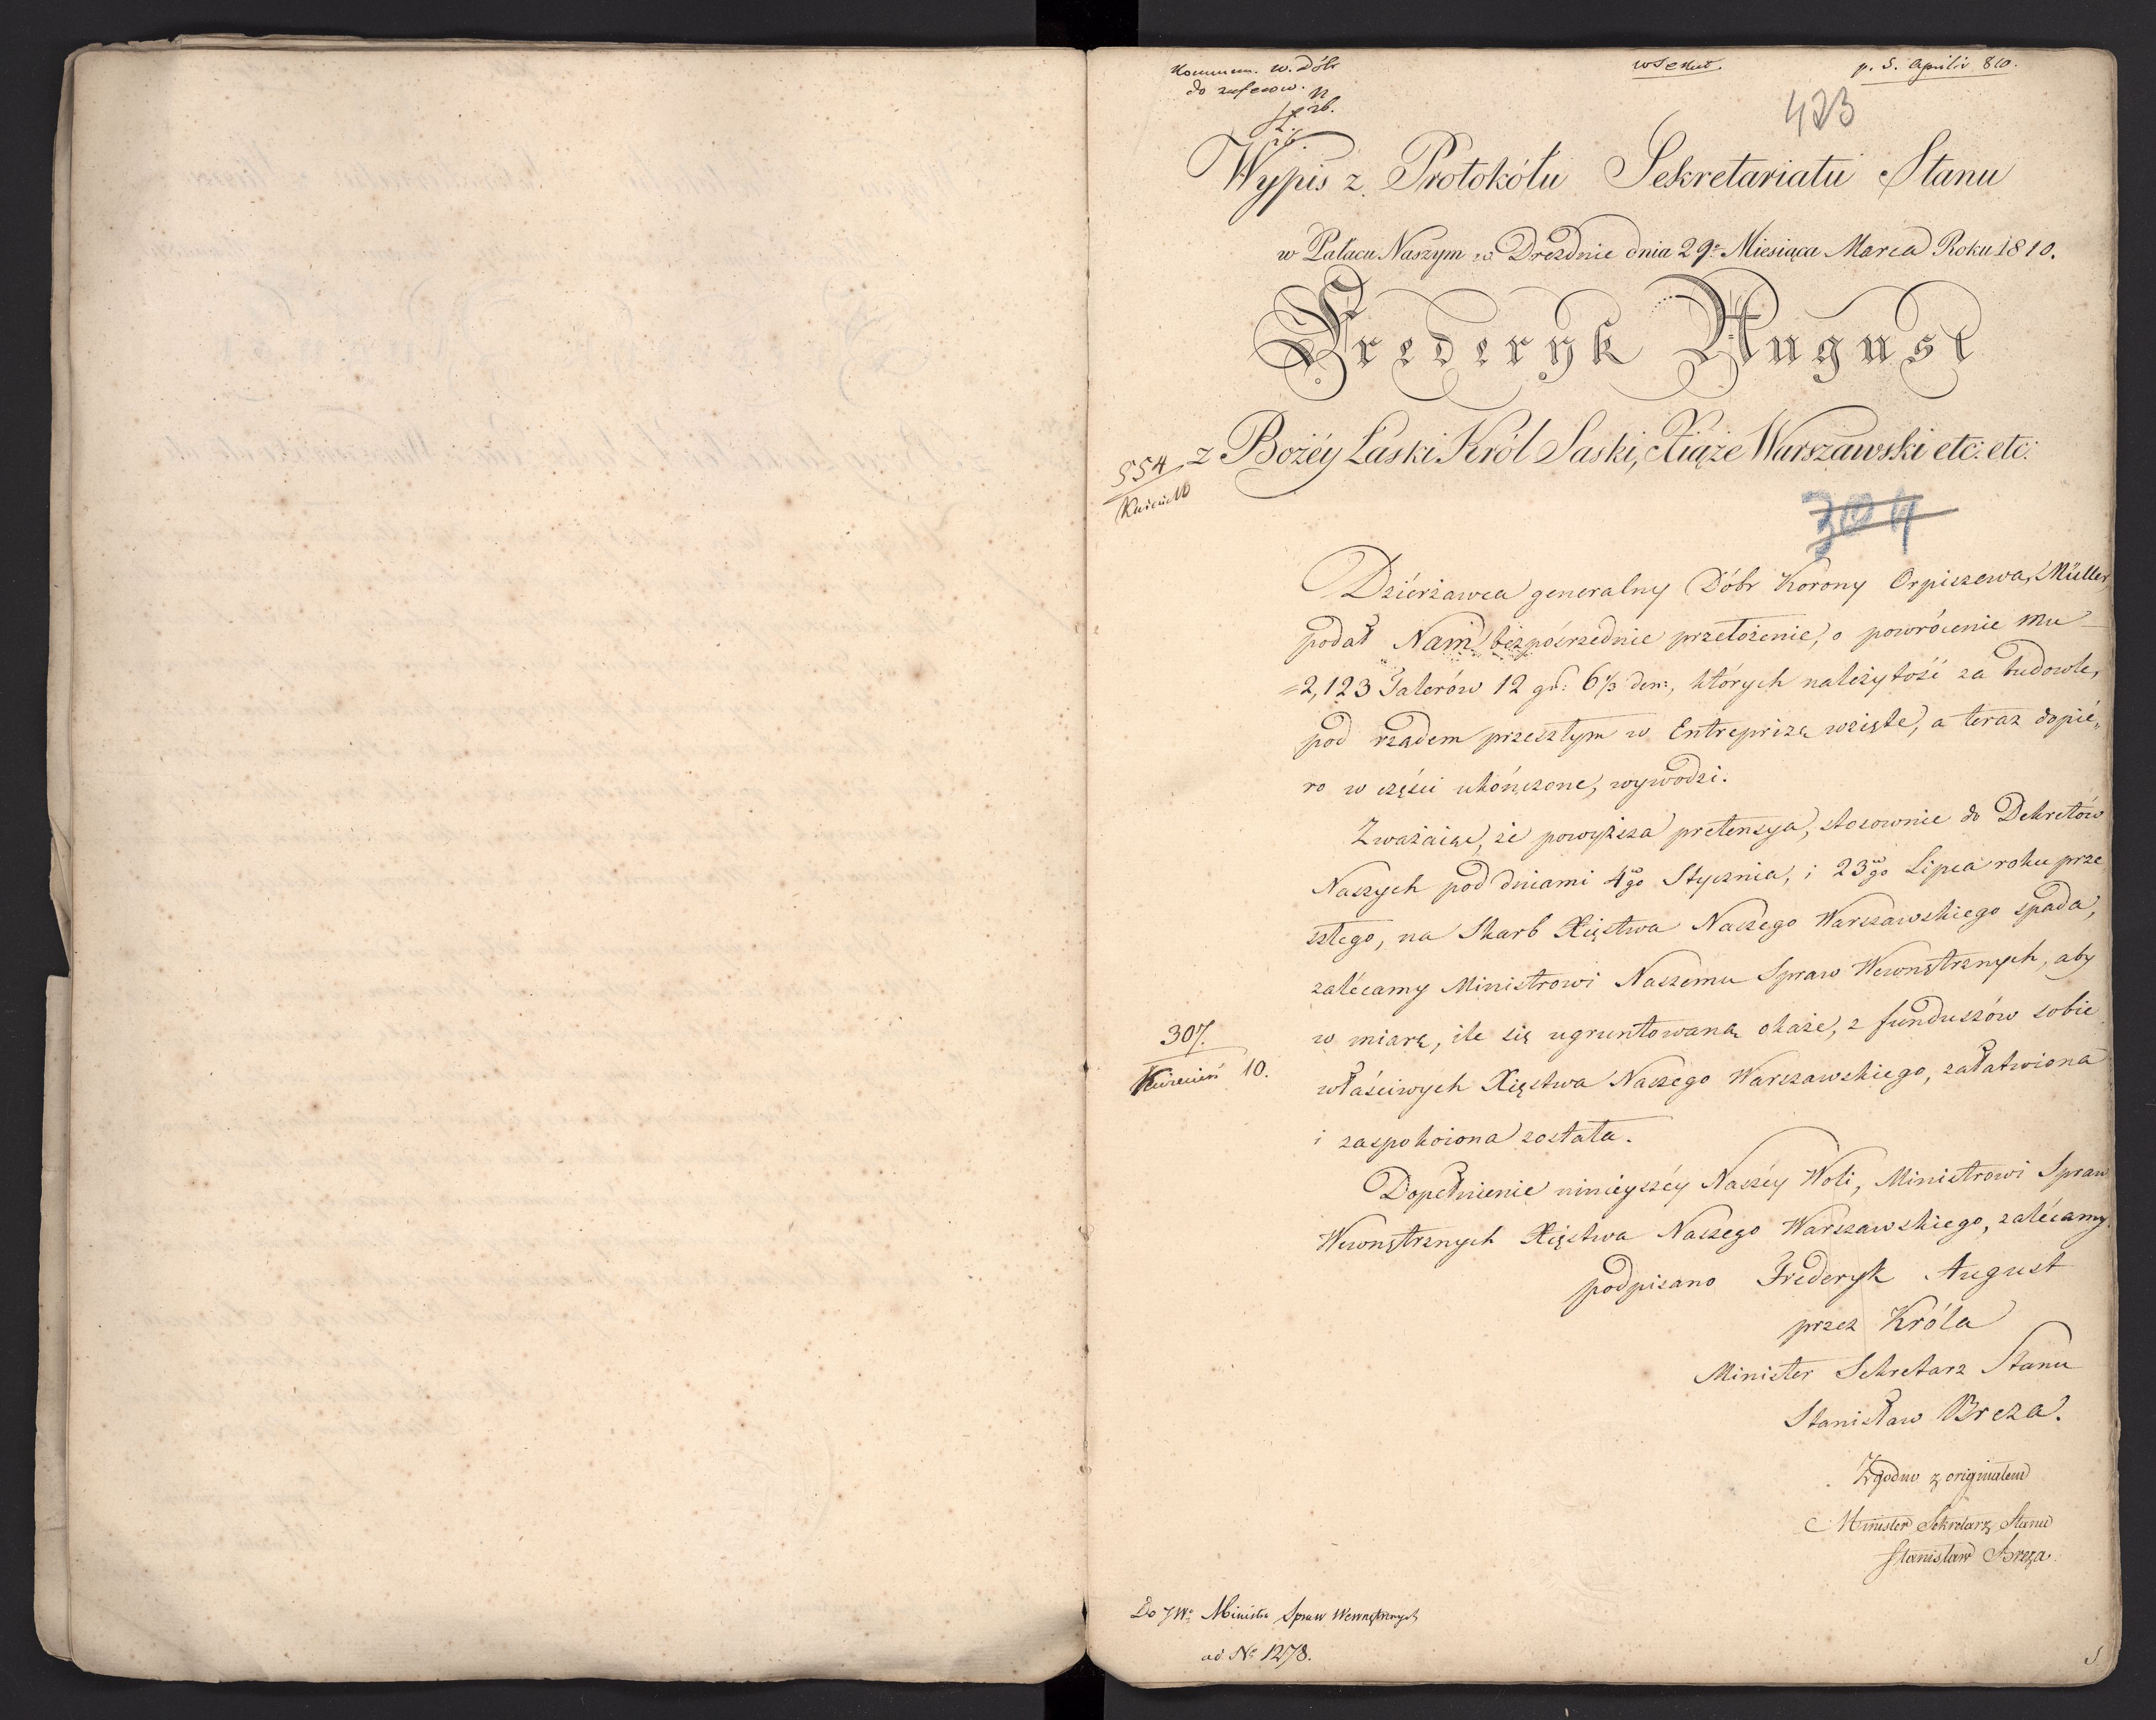 Kommun. w. Dóbr
do
w Sekret.
p. 5. Aprilis 810.
423
Wypis z Protokółu Sekretariatu Stanu
w Pałacu Naszym w Dreźdnie dnia 29º Miesiąca Marca Roku 1810.
Frederyk August
z Bożéy Łaski Król Saski, Xiąże Warszawski etc: etc:
554
Kwiecień
304
Dziérżawca generalny Dóbr Korony Orpiszewa, Müller,
podał Nam bezpośrzednie przełożenie, o powrócenie mu
=2,123 Talerów 12 gr: 6⅓ den:, których należytość za budowle,
pod rządem przeszłym w Entreprizę wzięte, a teraz dopié„
ro w części ukończone, wywodzi.
Zważaiąc, że powyższa pretensya, stosownie do Dekretów
Naszych pod dniami 4go Stycznia, i 23go Lipca roku prze
szłego, na Skarb Xięstwa Naszego Warszawskiego spada,
zalécamy Ministrowi Naszemu Spraw Wewnętrznych, aby
w miarę, ile się ugruntowaną okaże, z funduszów sobie
właściwych Xięstwa Naszego Warszawskiego, załatwiona
i zaspokoiona została.
307.
Kwiecień 10.
Dopełnienie ninieyszéy Naszéy Woli, Ministrowi Spraw
Wewnętrznych Xięstwa Naszego Warszawskiego, zalécamy.
podpisano Frederyk August
przez Króla
Minister Sekretarz Stanu
Stanisław Breza.
Zgodno z originałem
Minister Sekretarz Stanu
Stanisław Breza
Do JWº Ministra Spraw Wewnętrznych
ad Nº 1278.